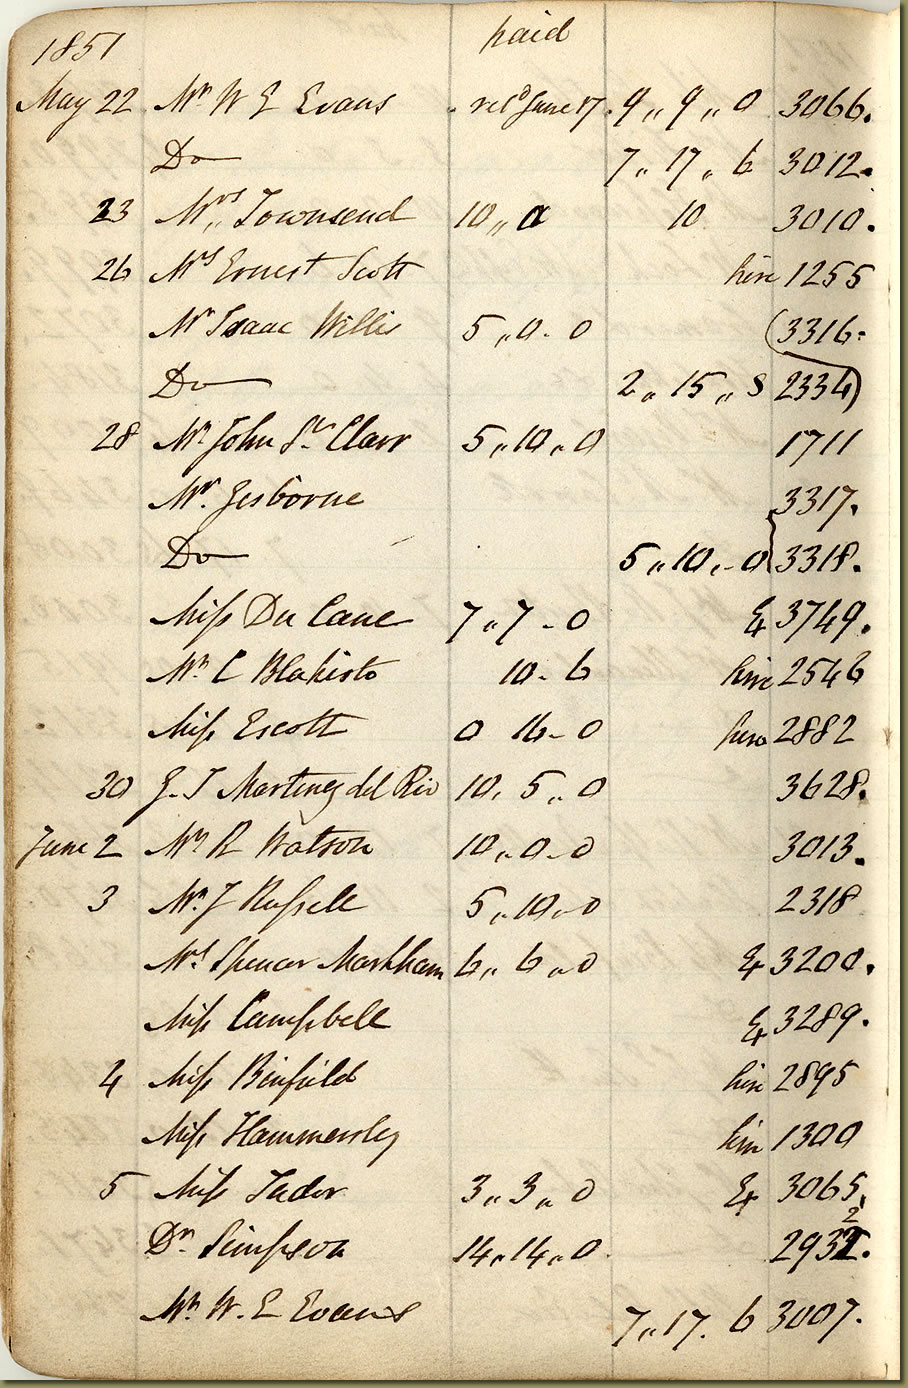 1851 paid
May 22 Mr W E Evans recd June 17. 9 ,, 9 ,, 0 3066.
Do 7 ,, 17 ,, 6 3012.
23 Mrs Townsend 10 ,, 0 10 3010.
26 Mrs Ernest Scott hire 1255
Mr Isaac Willis 5 ,, 0 - 0 (3316.
Do 2 ,, 15 ,, 8 2334)
28 Mr John St Clair 5 ,, 10 ,, 0 1711
Mr. Gisborne 3317.
Do 5 ,, 10 ,, - 0 3318.
Miss Du Cane 7 ,, 7 - 0 Ex 3749.
Mr C Blakisto 10 - 6 hire 2546
Miss Escott 0 16 - 0 hire 2882
30 J. T Martinez del Rio 10 , 5 ,, 0 3628.
June 2 Mr R Watson 10 ,, 0 - 0 3013.
3 Mr J Russell 5 ,, 10 ,, 0 2318
Mrs Spencer Markham 6 ,, 6 ,, 0 Ex 3200.
Miss Campbell Ex 3289.
4 Miss Binfield hire 2895
Miss Hammersley hire 1300
5 Miss Tudor 3 ,, 3 ,, 0 Ex 3065.
Dr Simpson 14 ,, 14 ,, 0 2932.
Mr W. E Evans 7 ,, 17 . 6 3007.